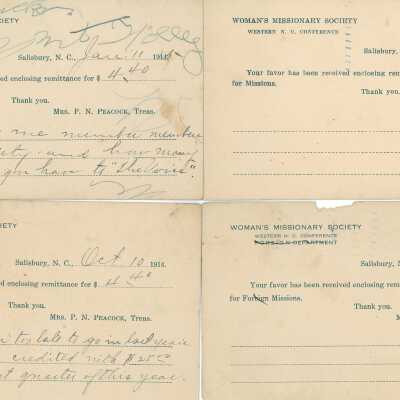 CIETY
Salisbury, N. C., Jan. 11 1915
ed enclosing remittance for $ 4.40
Thank you.
MRS. P. N. PEACOCK, Treas.
me member
iety and how many
you have to "the Voice".
WOMAN'S MISSIONARY SOCIETY
WESTERN N. C. CONFERENCE
Salisbury,
Your favor has been received enclosing remi
for Missions.
Thank you.
CIETY
Salisbury, N. C., Oct 10 1914.
ed enclosing remittance for $ 4.40
Thank you.
MRS. P. N. PEACOCK, Treas.
too late to go in last year's
credited with $25
st quarter of this year.
WOMAN'S MISSIONARY SOCIETY
WESTERN N. C. CONFERENCE
FOREIGN DEPARTMENT
Salisbury, N
Your favor has been received enclosing remi
for Foreign Missions.
Thank you.
M